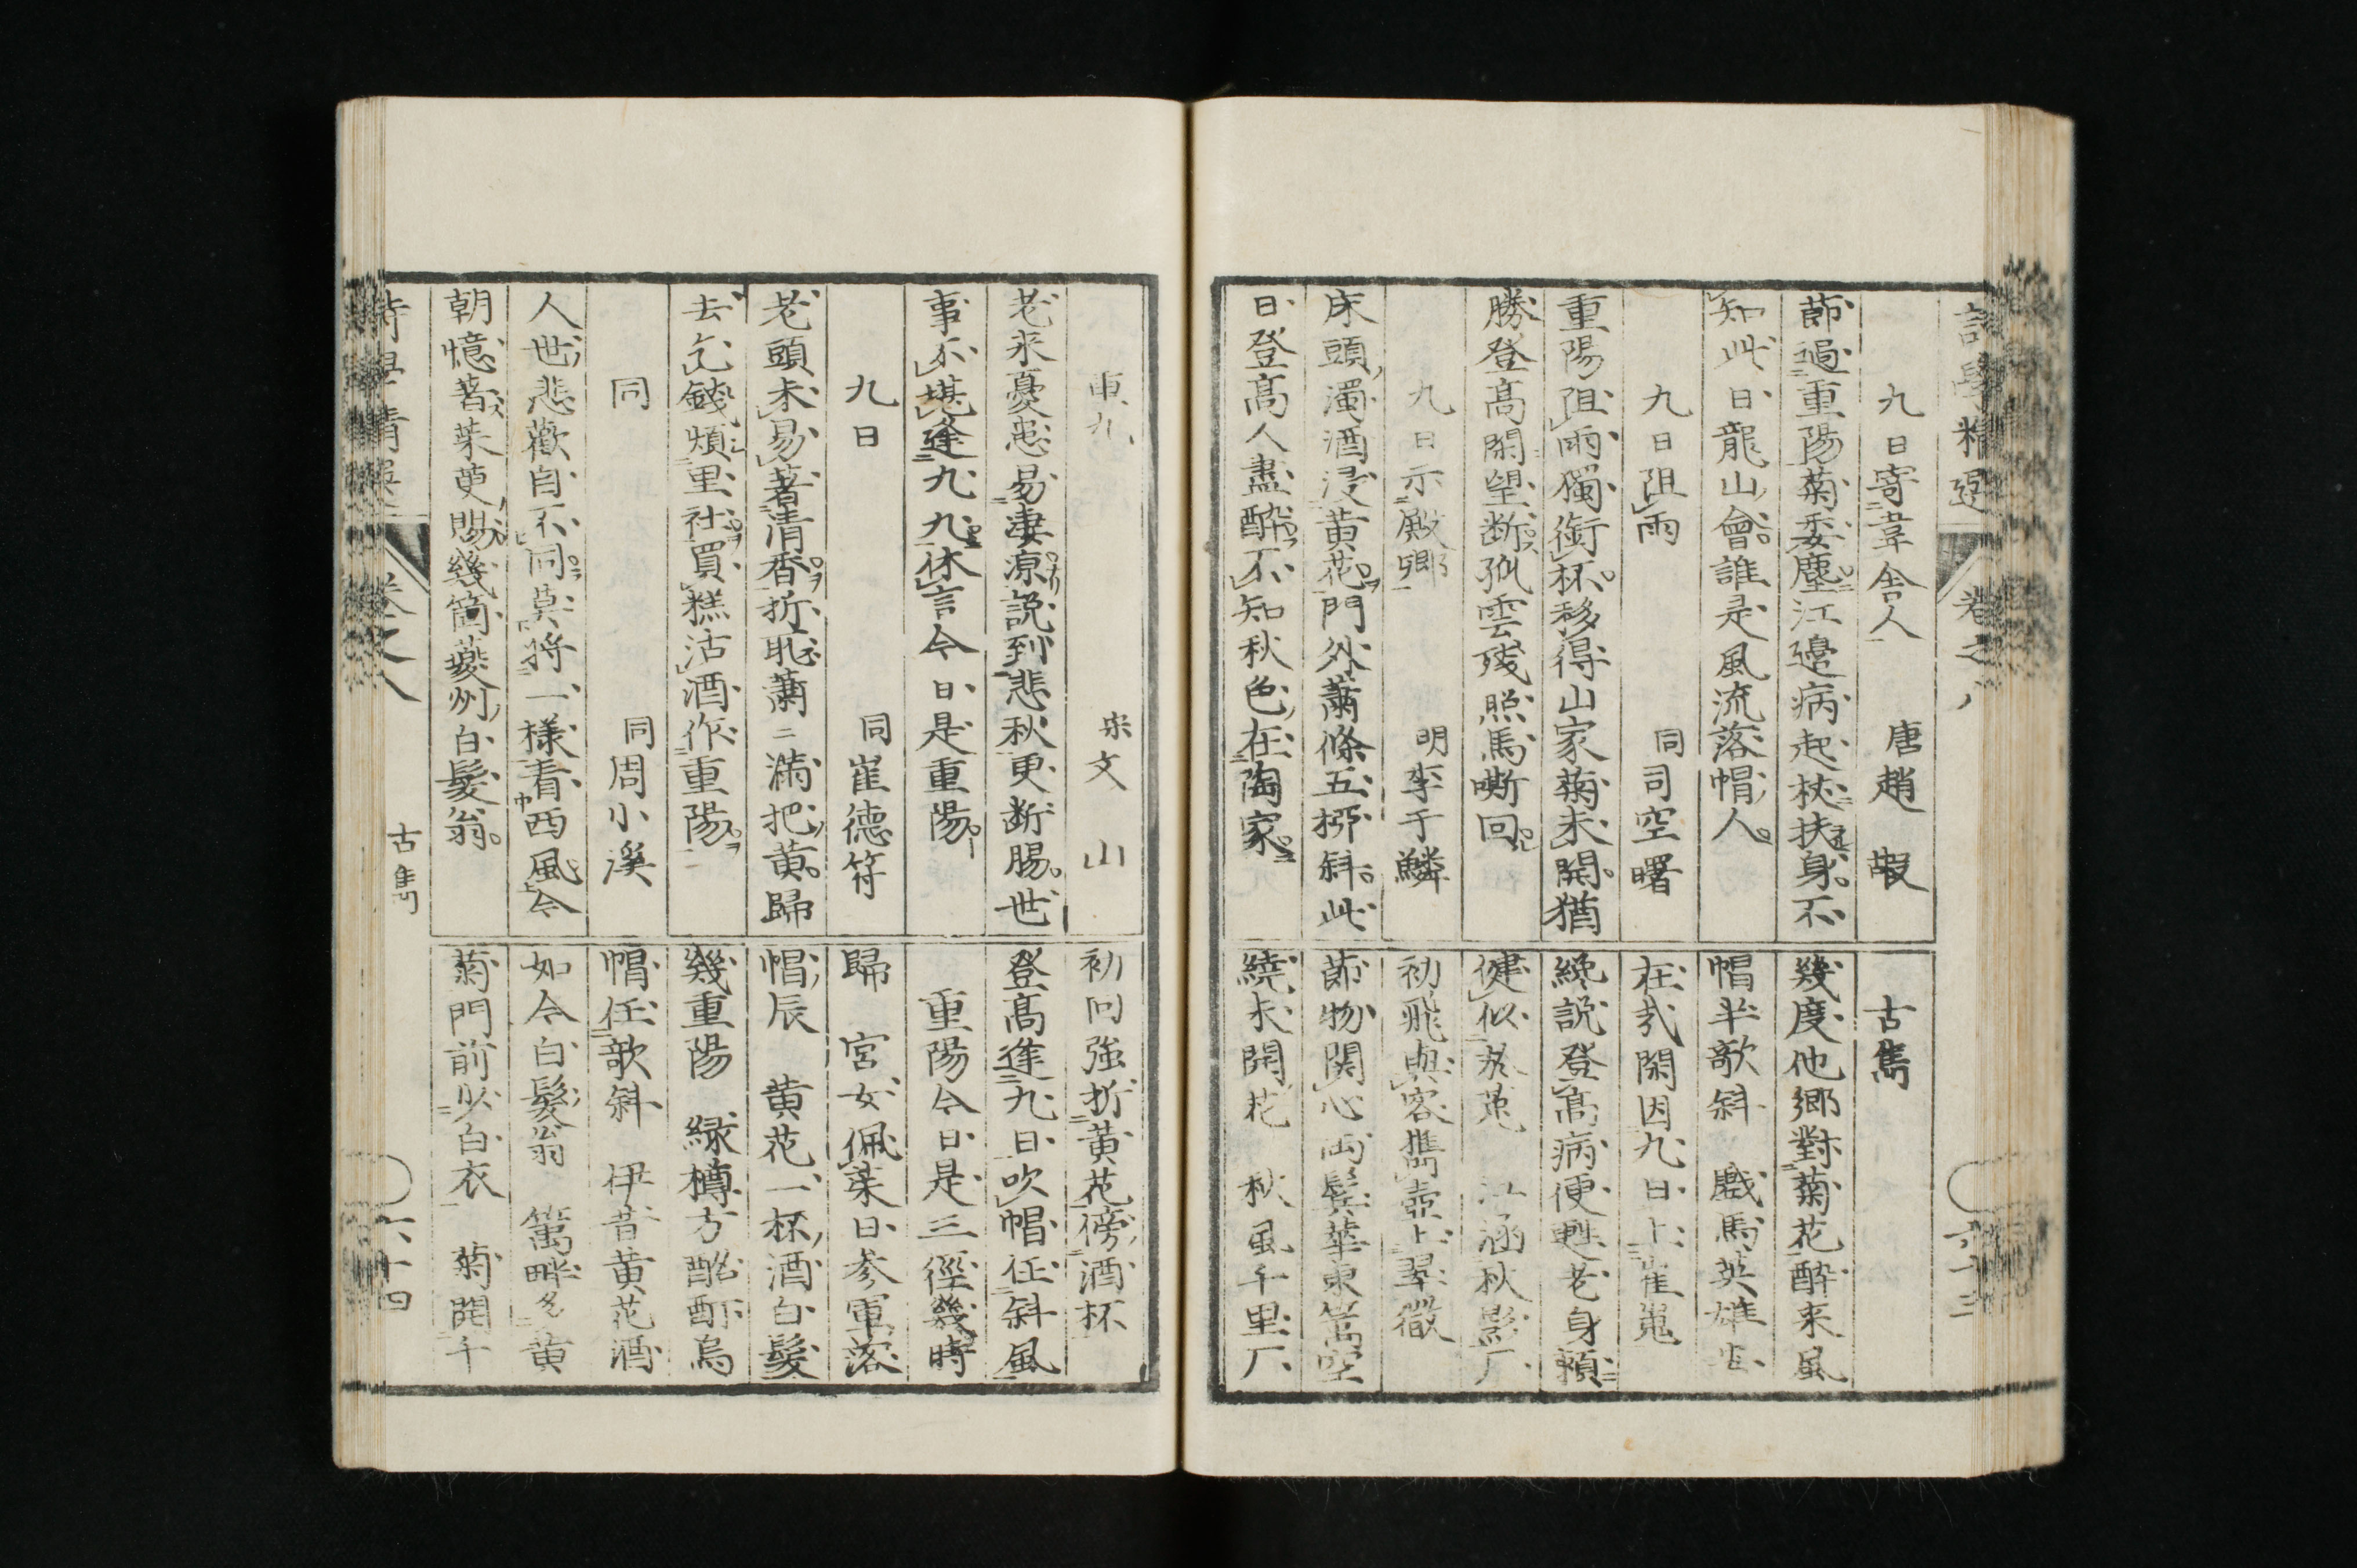 詩學精選 卷之八
九日寄韋舎人 唐趙嘏
節過重陽菊委塵江邉病起杖扶身不
知此日龍山會誰是風流落帽人
九日阻雨 同司空曙
重陽阻雨獨銜杯移得山家菊未開猶
勝登髙閑望断孤雲殘照馬嘶回
九日示殿卿 明李于鱗
床頭濁酒浸黄花門外蕭條五栁斜此
日登髙人盡酔不知秋色在陶家
古雋
幾度他郷對菊花酔来風
帽半欹斜 戲馬英雄
在 閑因九日上崔嵬
纔説登髙病便甦老身頼
健似 涵秋影厂
初飛與客雋壺上翠微
節物関心両鬓華東篱空
繞未開花 秋風千里厂
六十三
宋文山
老来憂患易凄凉説到悲秋更断腸世
事不堪逢九九休言今日是重陽
九日 同崔德符
老頭未易著清香折恥蕭二満把黄歸
去乞錢煩里社買糕沽酒作重陽
同 同周小溪
人世悲歡自不同莫将一様看西風今
朝憶著茱萸賜幾箇夔州白髮翁
初回強折黄花傍酒杯
登髙逢九日吹帽任斜風
重陽今日是三徑幾時
歸 宮女佩茱日参軍落
帽辰 黄花一杯酒白髮
幾重陽 緑樽方酩酊烏
帽任欹斜 伊昔黄花酒
如今白髮翁 篱畔多黄
菊門前少白衣 菊開千
卷之八
古雋
六十四